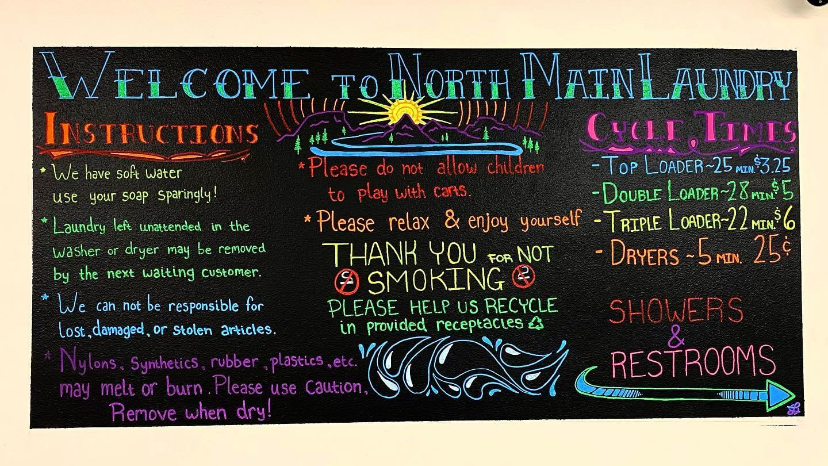 WELCOME TO NORTH MAIN LAUNDRY
INSTRUCTIONS
* We have soft water
use your soap sparingly!
* Laundry left unattended in the
washer or dryer may be removed
by the next waiting customer.
* We can not be responsible for
lost, damaged, or stolen articles.
* Nylons, Synthetics, rubber, plastics, etc.
may melt or burn. Please use Caution,
Remove when dry!
* Please do not allow children
to play with carts.
* Please relax & enjoy yourself
THANK YOU FOR NOT
SMOKING
PLEASE HELP US RECYCLE
in provided receptacles
CYCLE TIMES
- TOP LOADER ~ 25 MIN. $3.25
- DOUBLE LOADER ~ 28 MIN. $5
- TRIPLE LOADER ~ 22 MIN. $6
- DRYERS ~ 5 MIN. 25¢
SHOWERS
&
RESTROOMS